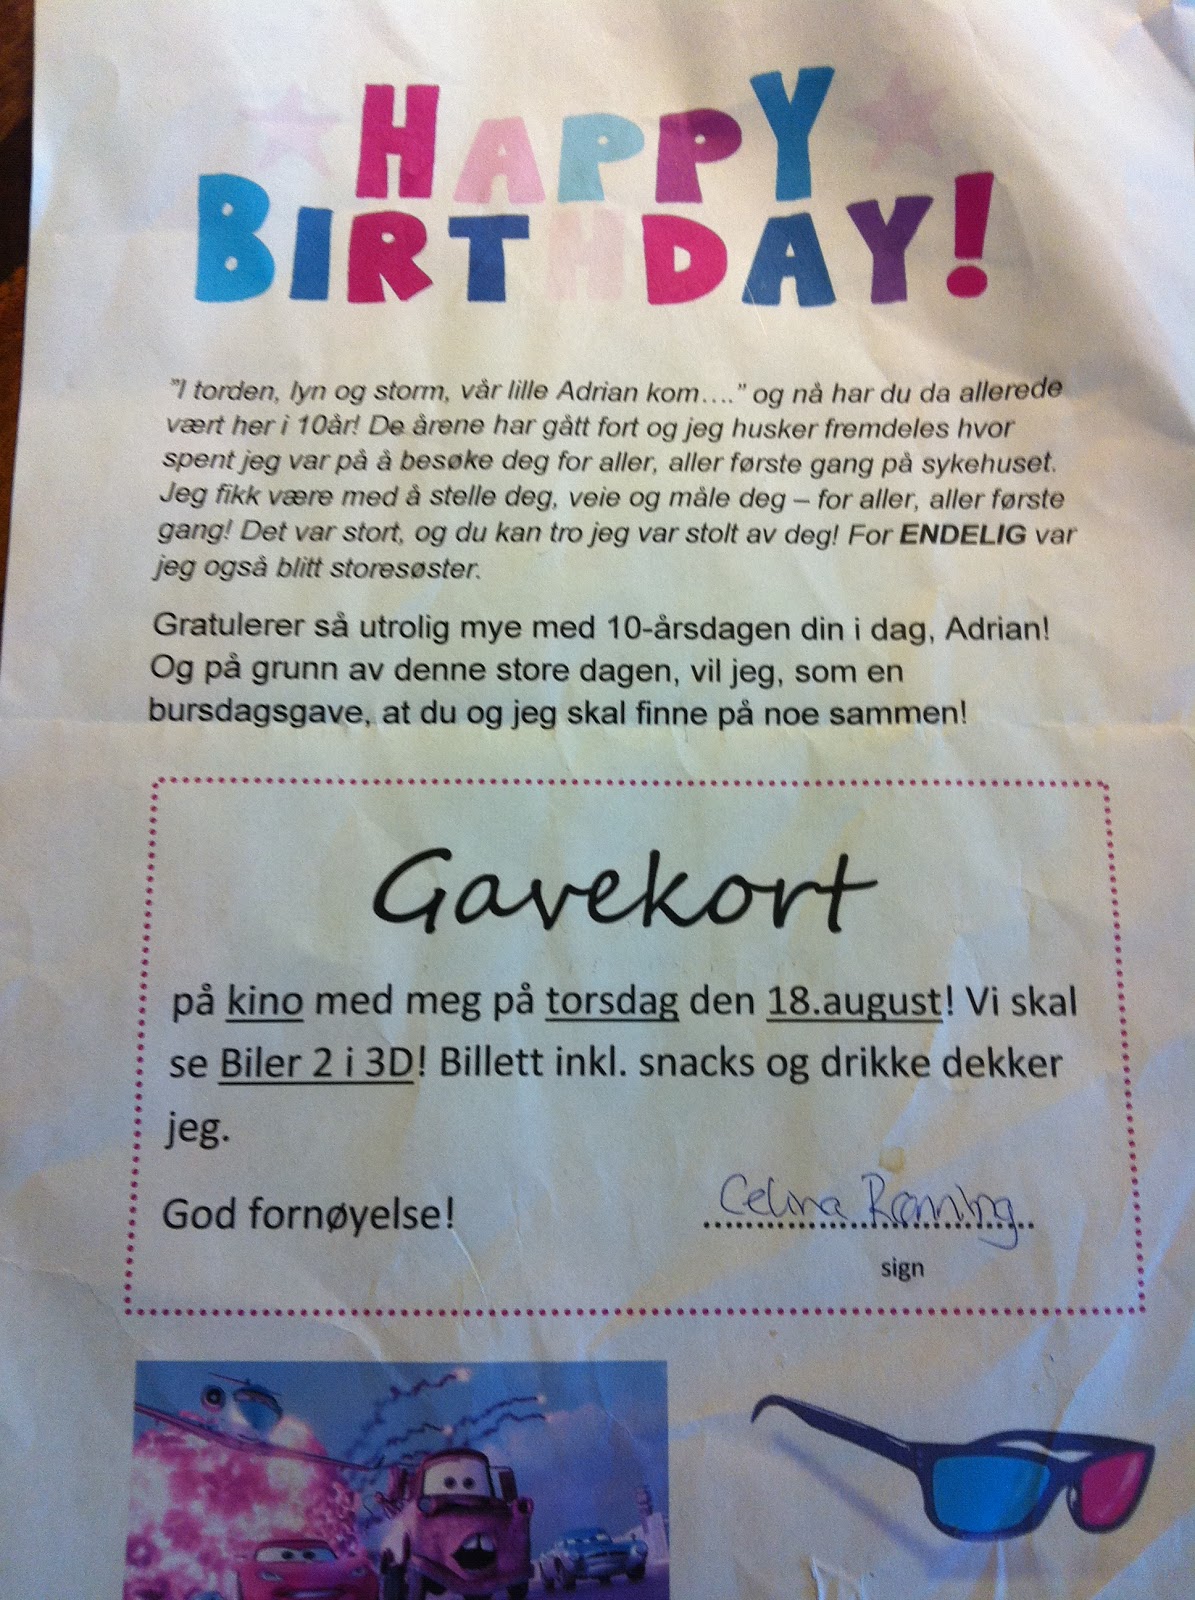 HAPPY
BIRTHDAY!
"I torden, lyn og storm, vår lille Adrian kom…." og nå har du da allerede
vært her i 10år! De årene har gått fort og jeg husker fremdeles hvor
spent jeg var på å besøke deg for aller, aller første gang på sykehuset.
Jeg fikk være med å stelle deg, veie og måle deg – for aller, aller første
gang! Det var stort, og du kan tro jeg var stolt av deg! For ENDELIG var
jeg også blitt storesøster.
Gratulerer så utrolig mye med 10-årsdagen din i dag, Adrian!
Og på grunn av denne store dagen, vil jeg, som en
bursdagsgave, at du og jeg skal finne på noe sammen!
Gavekort
på kino med meg på torsdag den 18.august! Vi skal
se Biler 2 i 3D! Billett inkl. snacks og drikke dekker
jeg.
God fornøyelse!
Celina Rønning
sign